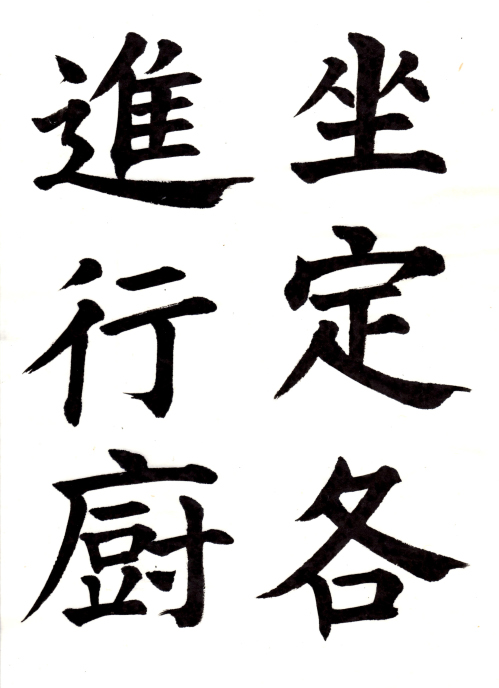 坐定各
進行廚